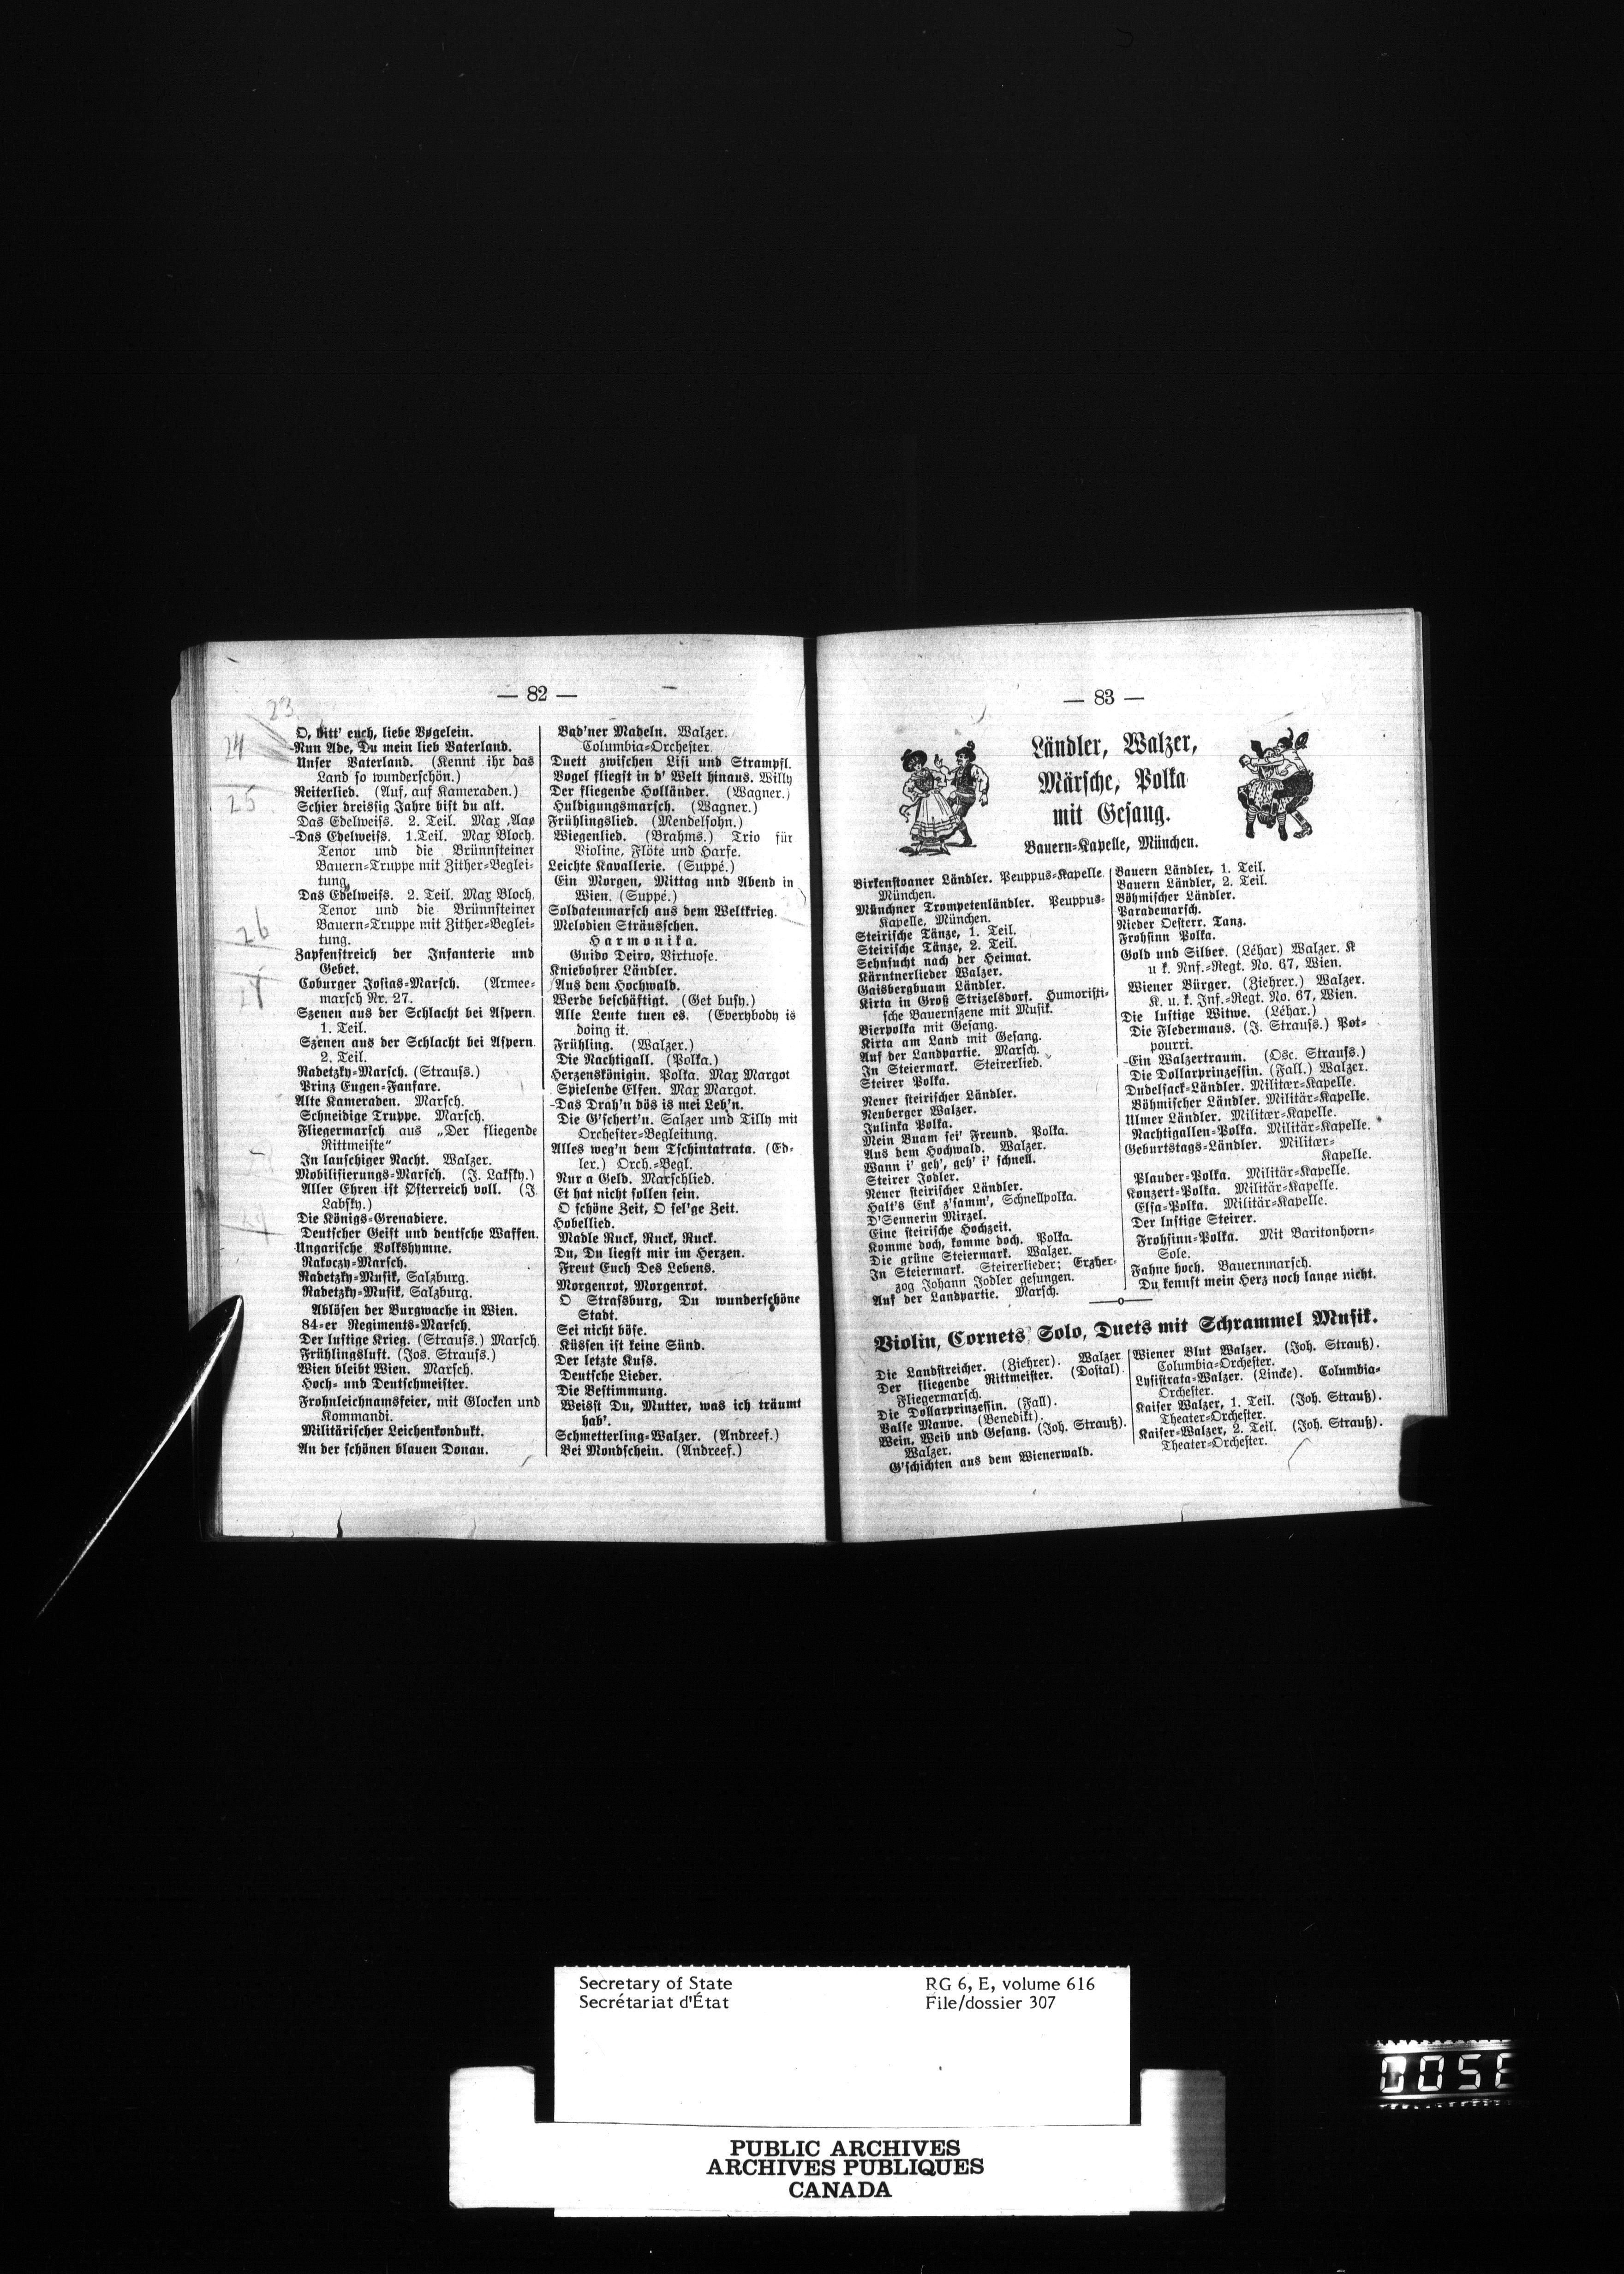 — 82 —
23
24
25
26
O, bitt' euch, liebe Vøgelein.
-Nun Ade, Du mein lieb Vaterland.
Unser Vaterland. (Kennt ihr das
Land so wunderschön.)
Reiterlied. (Auf, auf Kameraden.)
Schier dreissig Jahre bist du alt.
Das Edelweiss. 2. Teil. Max
-Das Edelweiss. 1.Teil. Max Bloch.
Tenor und die Brünnsteiner
Bauern-Truppe mit Zither-Beglei-
tung.
Das Edelweiss. 2. Teil. Max Bloch,
Tenor und die Brünnsteiner
Bauern-Truppe mit Zither-Beglei-
tung.
Zapfenstreich der Infanterie und
Gebet.
Coburger Josias-Marsch. (Armee-
marsch Nr. 27.
Szenen aus der Schlacht bei Aspern.
1. Teil.
Szenen aus der Schlacht bei Aspern.
2. Teil.
Radetzky-Marsch. (Strauss.)
Prinz Eugen-Fanfare.
Alte Kameraden. Marsch.
Schneidige Truppe. Marsch.
Fliegermarsch aus „Der fliegende
Rittmeiste“
In lauschiger Nacht. Walzer.
Mobilisierungs-Marsch. (J. Latsky.)
Aller Ehren ist Østerreich voll. (J.
Labsky.)
Die Königs-Grenadiere.
Deutscher Geist und deutsche Waffen.
Ungarische Volkshymne.
Rakoczy-Marsch.
Radetzky-Musik, Salzburg.
Radetzky-Musik, Salzburg.
Ablösen der Burgwache in Wien.
84-er Regiments-Marsch.
Der lustige Krieg. (Strauss.) Marsch.
Frühlingsluft. (Jos. Strauss.)
Wien bleibt Wien. Marsch.
Hoch- und Deutschmeister.
Frohnleichnamsfeier, mit Glocken und
Kommandi.
Militärischer Leichenkondukt.
An der schönen blauen Donau.
Bad'ner Madeln. Walzer.
Columbia-Orchester.
Duett zwischen Lisi und Strampfl.
Vogel fliegst in d' Welt hinaus. Willy
Der fliegende Holländer. (Wagner.)
Huldigungsmarsch. (Wagner.)
Frühlingslied. (Mendelsohn.)
Wiegenlied. (Brahms.) Trio für
Violine, Flöte und Harfe.
Leichte Kavallerie. (Suppé.)
Ein Morgen, Mittag und Abend in
Wien. (Suppé.)
Soldatenmarsch aus dem Weltkrieg.
Melodien Sträusschen.
Harmonika.
Guido Deiro, Virtuose.
Kniebohrer Ländler.
Aus dem Hochwald.
Werde beschäftigt. (Get busy.)
Alle Leute tuen es. (Everybody is
doing it.
Frühling. (Walzer.)
Die Nachtigall. (Polka.)
Herzenskönigin. Polka. Max Margot
Spielende Elfen. Max Margot.
-Das Drah'n dös is mei Leb'n.
Die G'schert'n. Salzer und Tilly mit
Orchester-Begleitung.
Alles weg'n dem Tschintatrata. (Ed-
ler.) Orch.-Begl.
Nur a Geld. Marschlied.
Et hat nicht sollen sein.
O schöne Zeit, O sel'ge Zeit.
Hobellied.
Madle Ruck, Ruck, Ruck.
Du, Du liegst mir im Herzen.
Freut Euch Des Lebens.
Morgenrot, Morgenrot.
O Strassburg, Du wunderschöne
Stadt.
Sei nicht böse.
Küssen ist keine Sünd.
Der letzte Kuss.
Deutsche Lieder.
Die Bestimmung.
Weisst Du, Mutter, was ich träumt
hab'.
Schmetterling-Walzer. (Andreef.)
Bei Mondschein. (Andreef.)
— 83 —
Ländler, Walzer,
Märsche, Polka
mit Gesang.
Bauern-Kapelle, München.
Birkenstoaner Ländler. Peuppus-Kapelle
München.
Münchner Trompetenländler. Peuppus-
Kapelle, München.
Steirische Tänze, 1. Teil.
Steirische Tänze, 2. Teil.
Sehnsucht nach der Heimat.
Kärntnerlieder Walzer.
Gaisbergbuam Ländler.
Kirta in Groß Strizelsdorf. Humoristi-
sche Bauernszene mit Musik.
Bierpolka mit Gesang.
Kirta am Land mit Gesang.
Auf der Landpartie. Marsch.
In Steiermark. Steirerlied.
Steirer Polka.
Neuer steirischer Ländler.
Neuberger Walzer.
Julinka Polka.
Mein Buam sei' Freund. Polka.
Aus dem Hochwald. Walzer.
Wann i' geh', geh' i' schnell.
Steirer Jodler.
Neuer steirischer Ländler.
Halt's Enk z'samm', Schnellpolka.
D'Sennerin Mirzel.
Eine steirische Hochzeit.
Komme doch, komme doch. Polka.
Die grüne Steiermark. Walzer.
In Steiermark. Steirerlieder; Erzher-
zog Johann Jodler gesungen.
Auf der Landpartie. Marsch.
Bauern Ländler, 1. Teil.
Bauern Ländler, 2. Teil.
Böhmischer Ländler.
Parademarsch.
Nieder Oesterr. Tanz.
Frohsinn Polka.
Gold und Silber. (Léhar) Walzer. K
u k. Nnf.-Regt. No. 67, Wien.
Wiener Bürger. (Ziehrer.) Walzer.
K. u. k. Inf.-Regt. No. 67, Wien.
Die lustige Witwe. (Léhar.)
Die Fledermaus. (J. Strauss.) Pot-
pourri.
-Ein Walzertraum. (Osc. Strauss.)
Die Dollarprinzessin. (Fall.) Walzer.
Dudelsack-Ländler. Militær-Kapelle.
Böhmischer Ländler. Militär-Kapelle.
Ulmer Ländler. Militær-Kapelle.
Nachtigallen-Polka. Militär-Kapelle.
Geburtstags-Ländler. Militær-
Kapelle.
Plauder-Polka. Militär-Kapelle.
Konzert-Polka. Militär-Kapelle.
Elsa-Polka. Militär-Kapelle.
Der lustige Steirer.
Frohsinn-Polka. Mit Baritonhorn-
Sole.
Fahne hoch. Bauernmarsch.
Du kennst mein Herz noch lange nicht.
Violin, Cornets Solo, Duets mit Schrammel Musik.
Die Landstreicher. (Ziehrer). Walzer
Der fliegende Rittmeister. (Dostal).
Fliegermarsch.
Die Dollarprinzessin. (Fall).
Valse Mauve. (Benedikt).
Wein, Weib und Gesang. (Joh. Strauß).
Walzer.
G'schichten aus dem Wienerwald.
Wiener Blut Walzer. (Joh. Strauß).
Columbia-Orchester.
Lysistrata-Walzer. (Lincke). Columbia-
Orchester.
Kaiser Walzer, 1. Teil. (Joh. Strauß).
Theater-Orchester.
Kaiser-Walzer, 2. Teil. (Joh. Strauß).
Theater-Orchester.
Secretary of State
Secrétariat d'État
RG 6, E, volume 616
File/dossier 307
PUBLIC ARCHIVES
ARCHIVES PUBLIQUES
CANADA